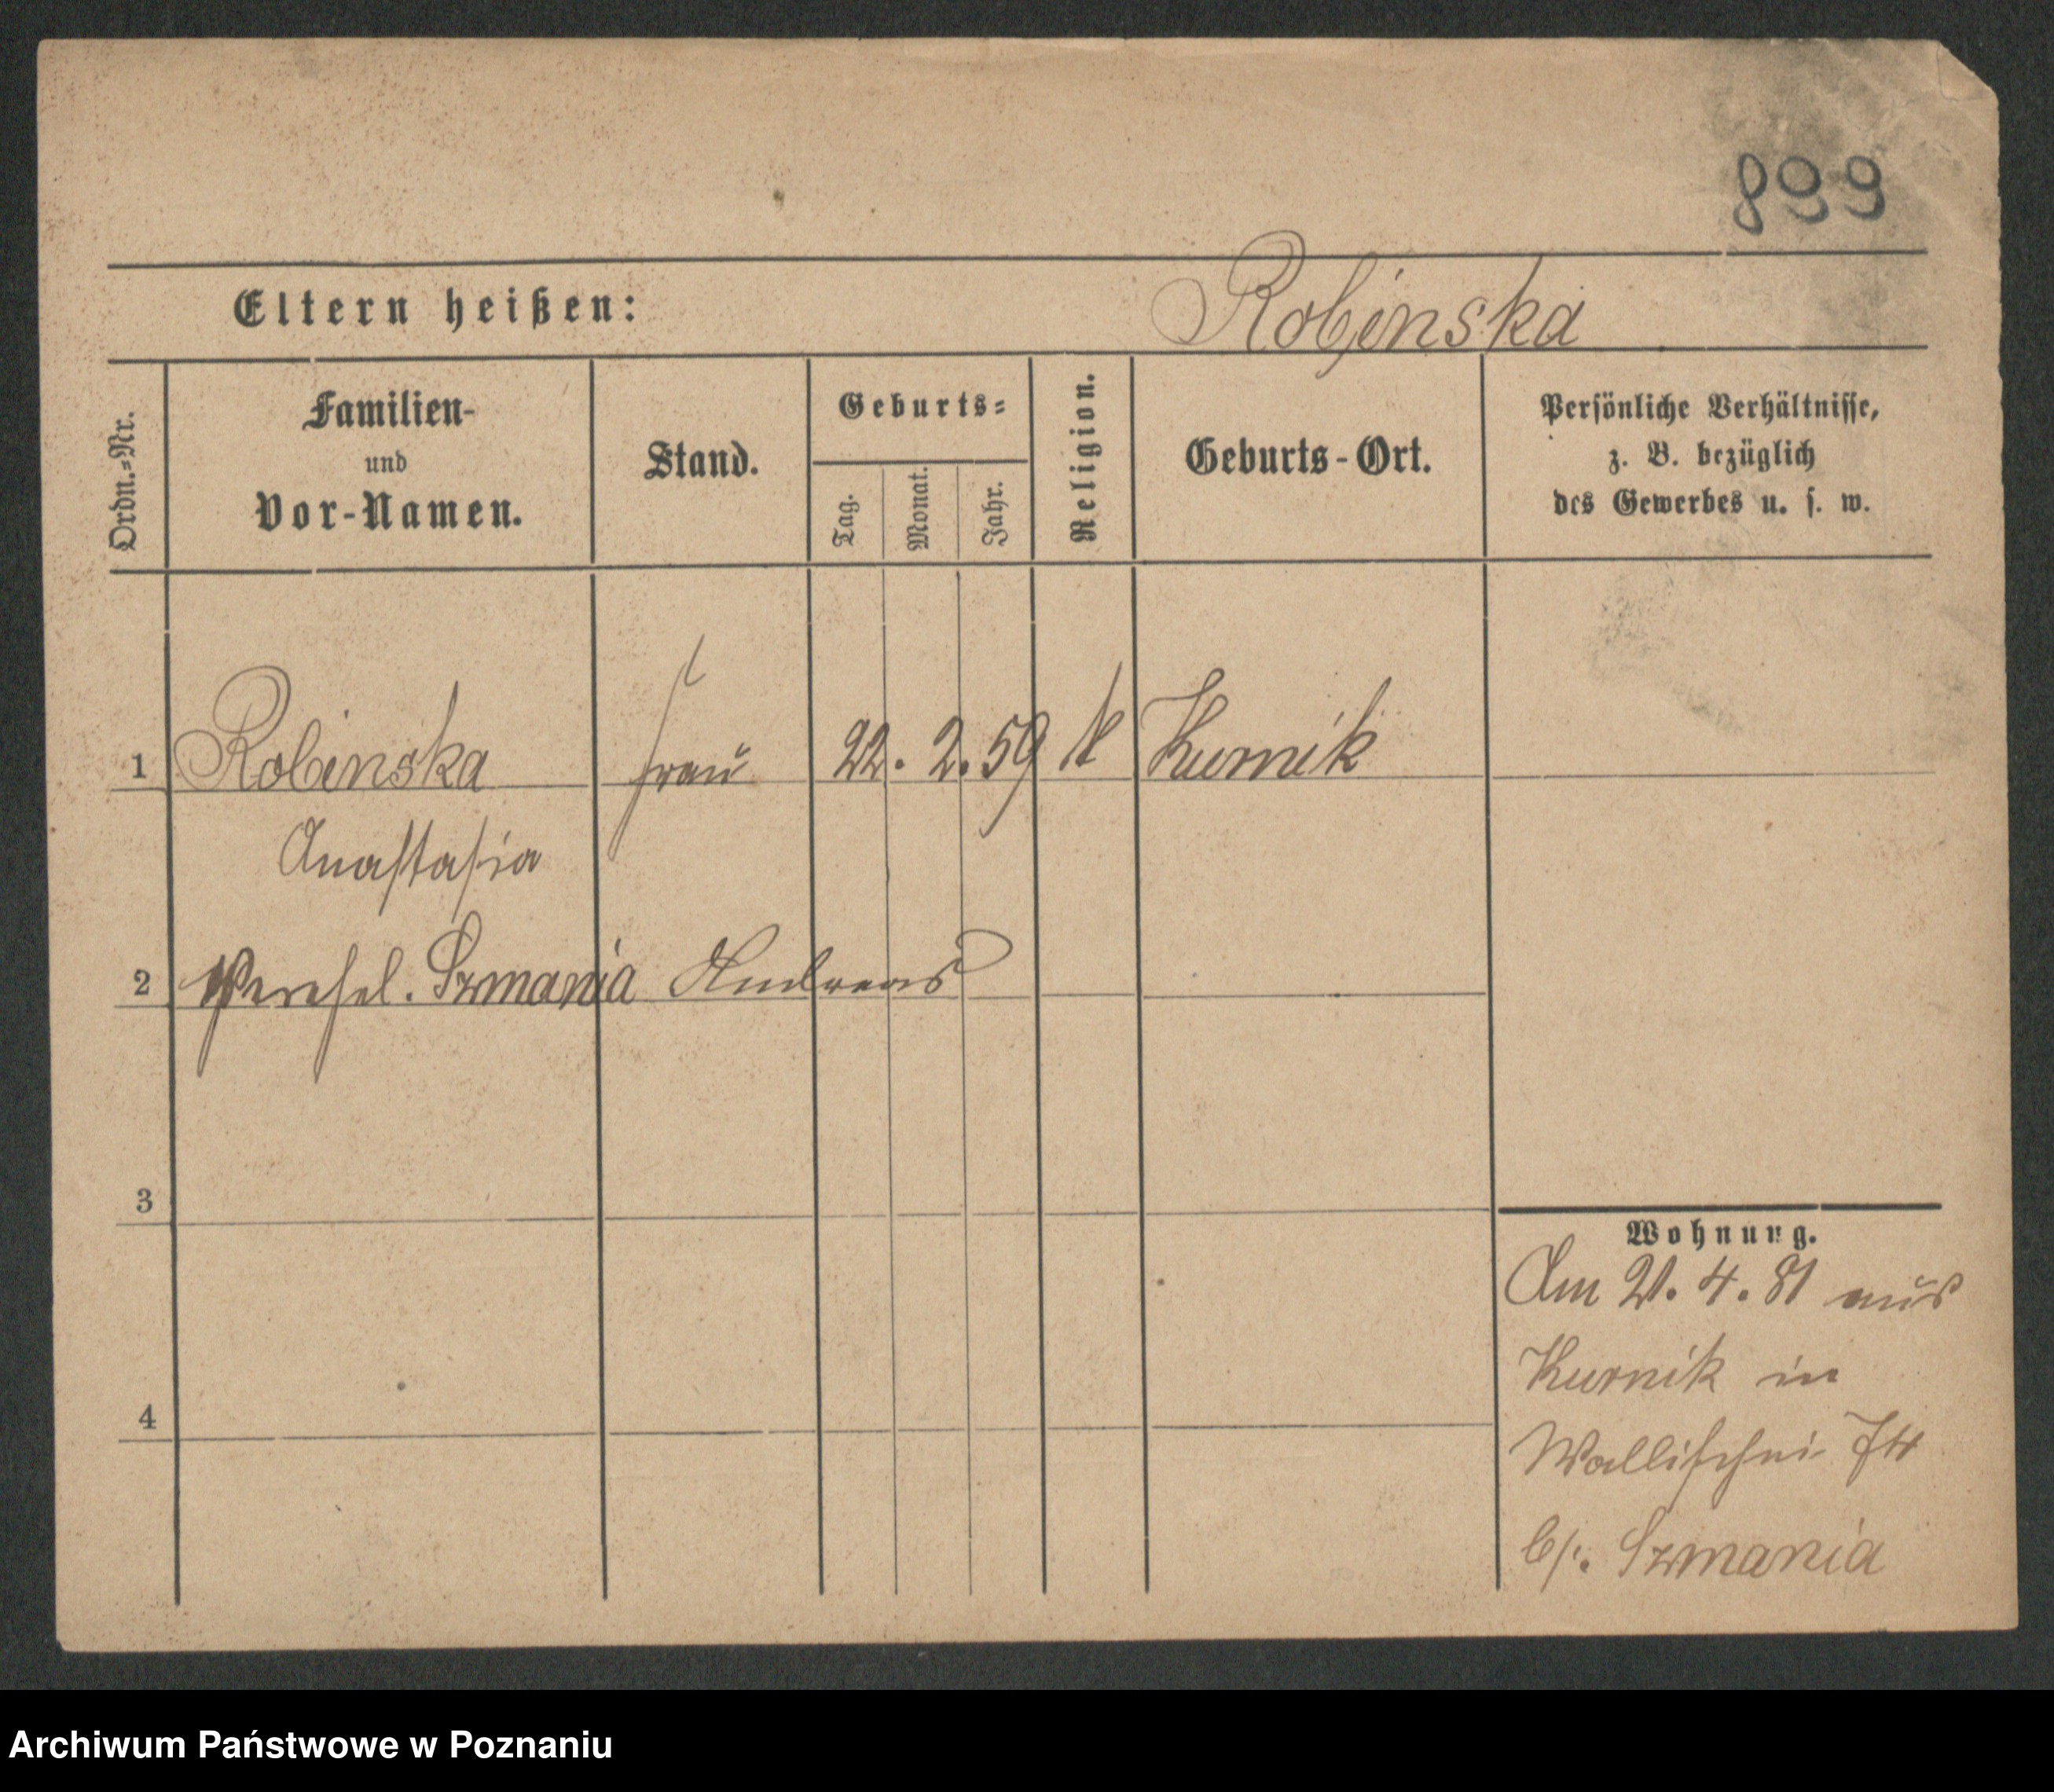 899
Eltern heißen:
Robinska
Ordn.-Nr.
Familien-
und
Vor-Namen.
Stand.
Geburts-
Tag.
Monat.
Jahr.
Religion.
Geburts-Ort.
Persönliche Verhältnisse,
z. B. bezüglich
des Gewerbes u. s. w.
1 Robinska Frau 22. 2. 59 k Kurnik
Anastasia
2 Szmania Andreas
3
4
Wohnung.
Am 4. 81 aus
Kurnik in
Wallischei
b/. Szmania
Archiwum Państwowe w Poznaniu